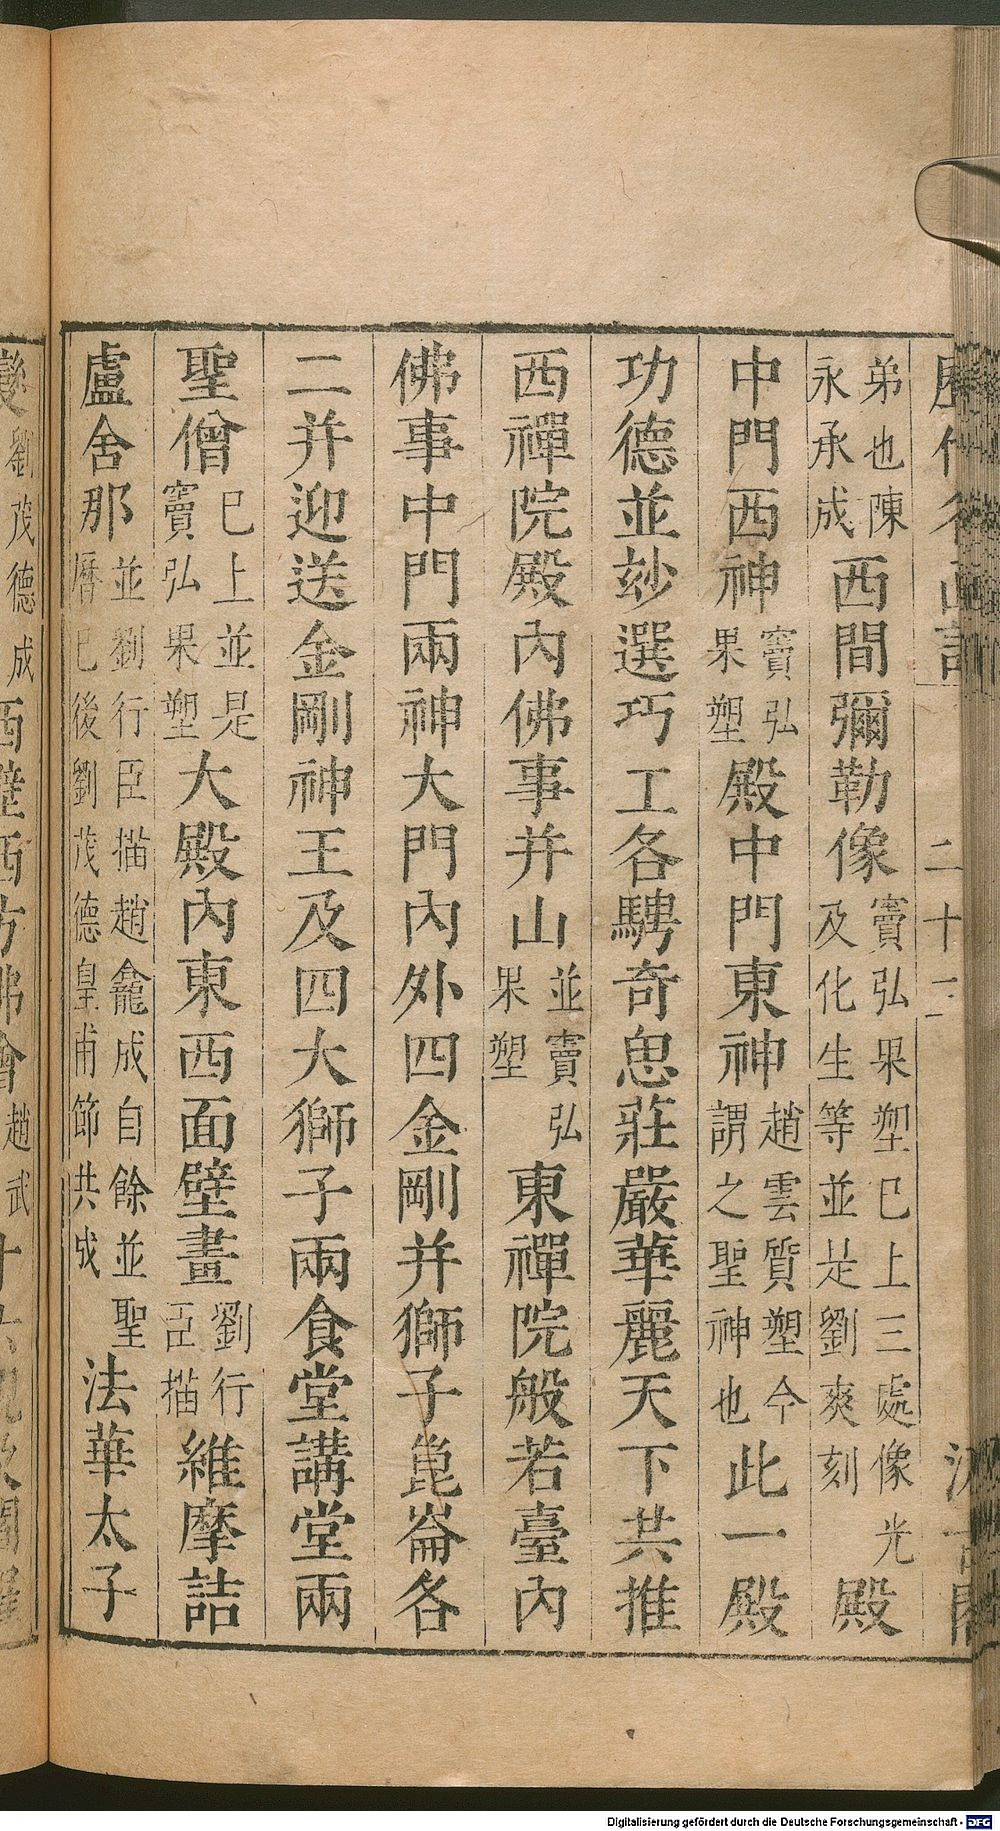 弟也陳永承成西間彌勒像竇弘果塑已上三處像光及化生等並是劉爽刻殿
中門西神竇弘果塑殿中門東神趙雲質塑今謂之聖神也此一殿
功德並玅選巧工各騁奇思莊嚴華麗天下共推
西禪院殿內佛事并山並竇弘果塑東禪院般若臺內
佛事中門兩神大門內外四金剛并獅子崑崙各
二并迎送金剛神王及四大獅子兩食堂講堂兩
聖僧已上並是竇弘果塑大殿內東西面壁畫劉行臣描維摩詰
盧舍那並劉行臣描趙龕成自餘並聖曆已後劉茂德皇甫節共成法華太子
二十二
劉茂德成西壁西方佛會趙武
Digitalisierung gefördert durch die Deutsche Forschungsgemeinschaft - DFG